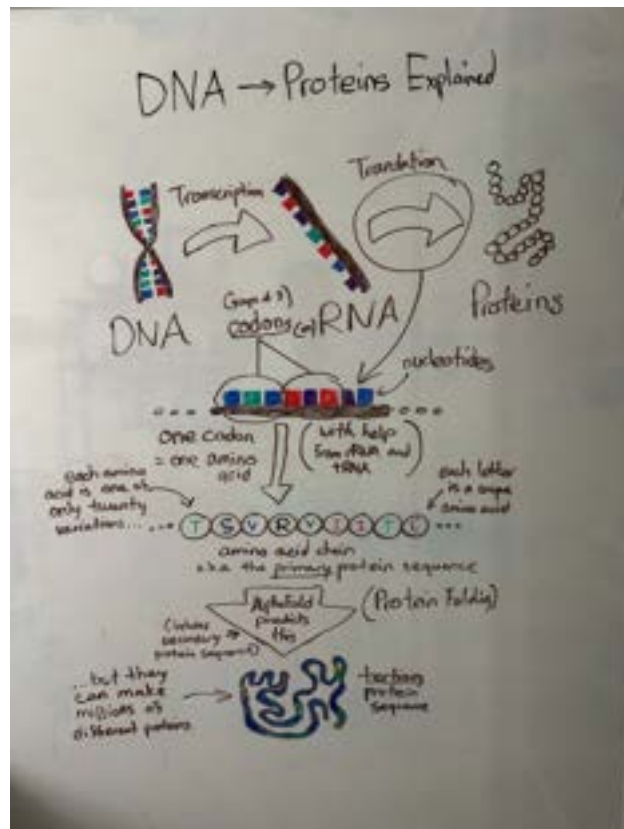 DNA → Proteins Explained
Transcription
Translation
DNA
(m)RNA
Proteins
(Groups of 3)
codons
nucleotides
one codon
= one amino
acid
(with help
from rRNA and
tRNA)
each amino
acid is one of
only twenty
variations...
each letter
is a
amino acid
... T S V R V I I T ...
amino acid chain
a.k.a the primary protein sequence
AlphaFold
predicts
this
(Protein Folding)
secondary
protein sequence)
...but they
can make
millions of
different proteins
tertiary
protein
sequence